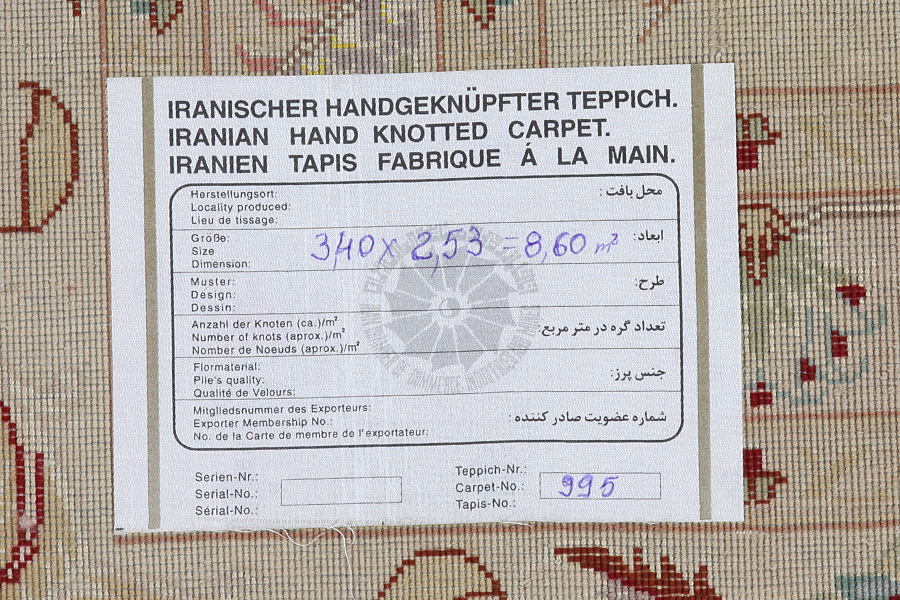 IRANISCHER HANDGEKNÜPFTER TEPPICH.
IRANIAN HAND KNOTTED CARPET.
IRANIEN TAPIS FABRIQUE Á LA MAIN.
Herstellungsort:
Locality produced:
Lieu de tissage:
محل بافت :
Größe:
Size
Dimension:
3,40 x 2,53 = 8,60 m²
ابعاد:
Muster:
Design:
Dessin:
طرح:
Anzahl der Knoten (ca.)/m²
Number of knots (aprox.)/m²
Nomber de Noeuds (aprox.)/m²
تعداد گره در متر مربع:
Flormaterial:
Pile's quality:
Qualité de Velours:
جنس پرز:
Mitgliedsnummer des Exporteurs:
Exporter Membership No.:
No. de la Carte de membre de l'exportateur:
شماره عضویت صادر کننده :
Serien-Nr.:
Serial-No.:
Sérial-No.:
Teppich-Nr.:
Carpet-No.:
Tapis-No.:
995